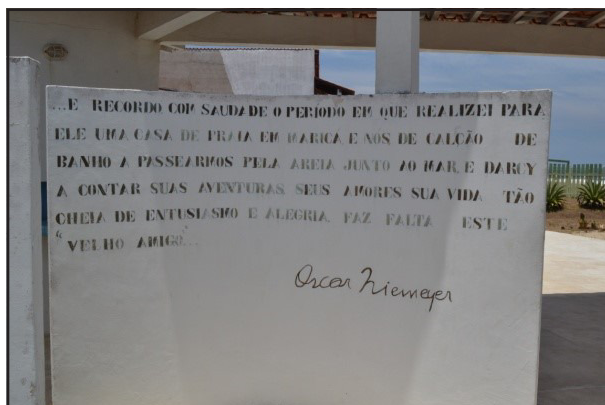 ...E RECORDO COM SAUDADE O PERIODO EM QUE REALIZEI PARA
ELE UMA CASA DE PRAIA EM MARICÁ E NÓS DE CALÇÃO DE
BANHO A PASSEARMOS PELA AREIA JUNTO AO MAR, E DARCY
A CONTAR SUAS AVENTURAS SEUS AMORES SUA VIDA TÃO
CHEIA DE ENTUSIASMO E ALEGRIA. FAZ FALTA ESTE
"VELHO AMIGO"...
Oscar Niemeyer